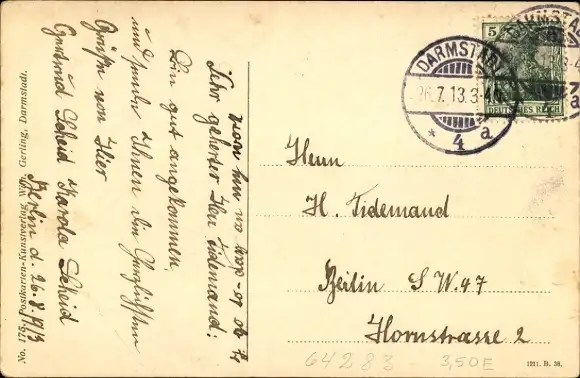 DARMSTADT
26.7.13.3-4N.
* 4 a
DARMSTADT
5
DEUTSCHES REICH
Herrn
H. Tidemand
Berlin S.W. 47
Hornstrasse 2
64283 - 3,50E
1231. B. 38.
Sehr geehrter Herr Tidemand!
Bin gut angekommen,
und sende Ihnen die herzlichsten
Grüße von Hier
Gertrud Scheid Karola Scheid
Berlin d. 26.7.1913
No. 175. Postkarten-Kunstverlag Wilh. Gerling, Darmstadt.